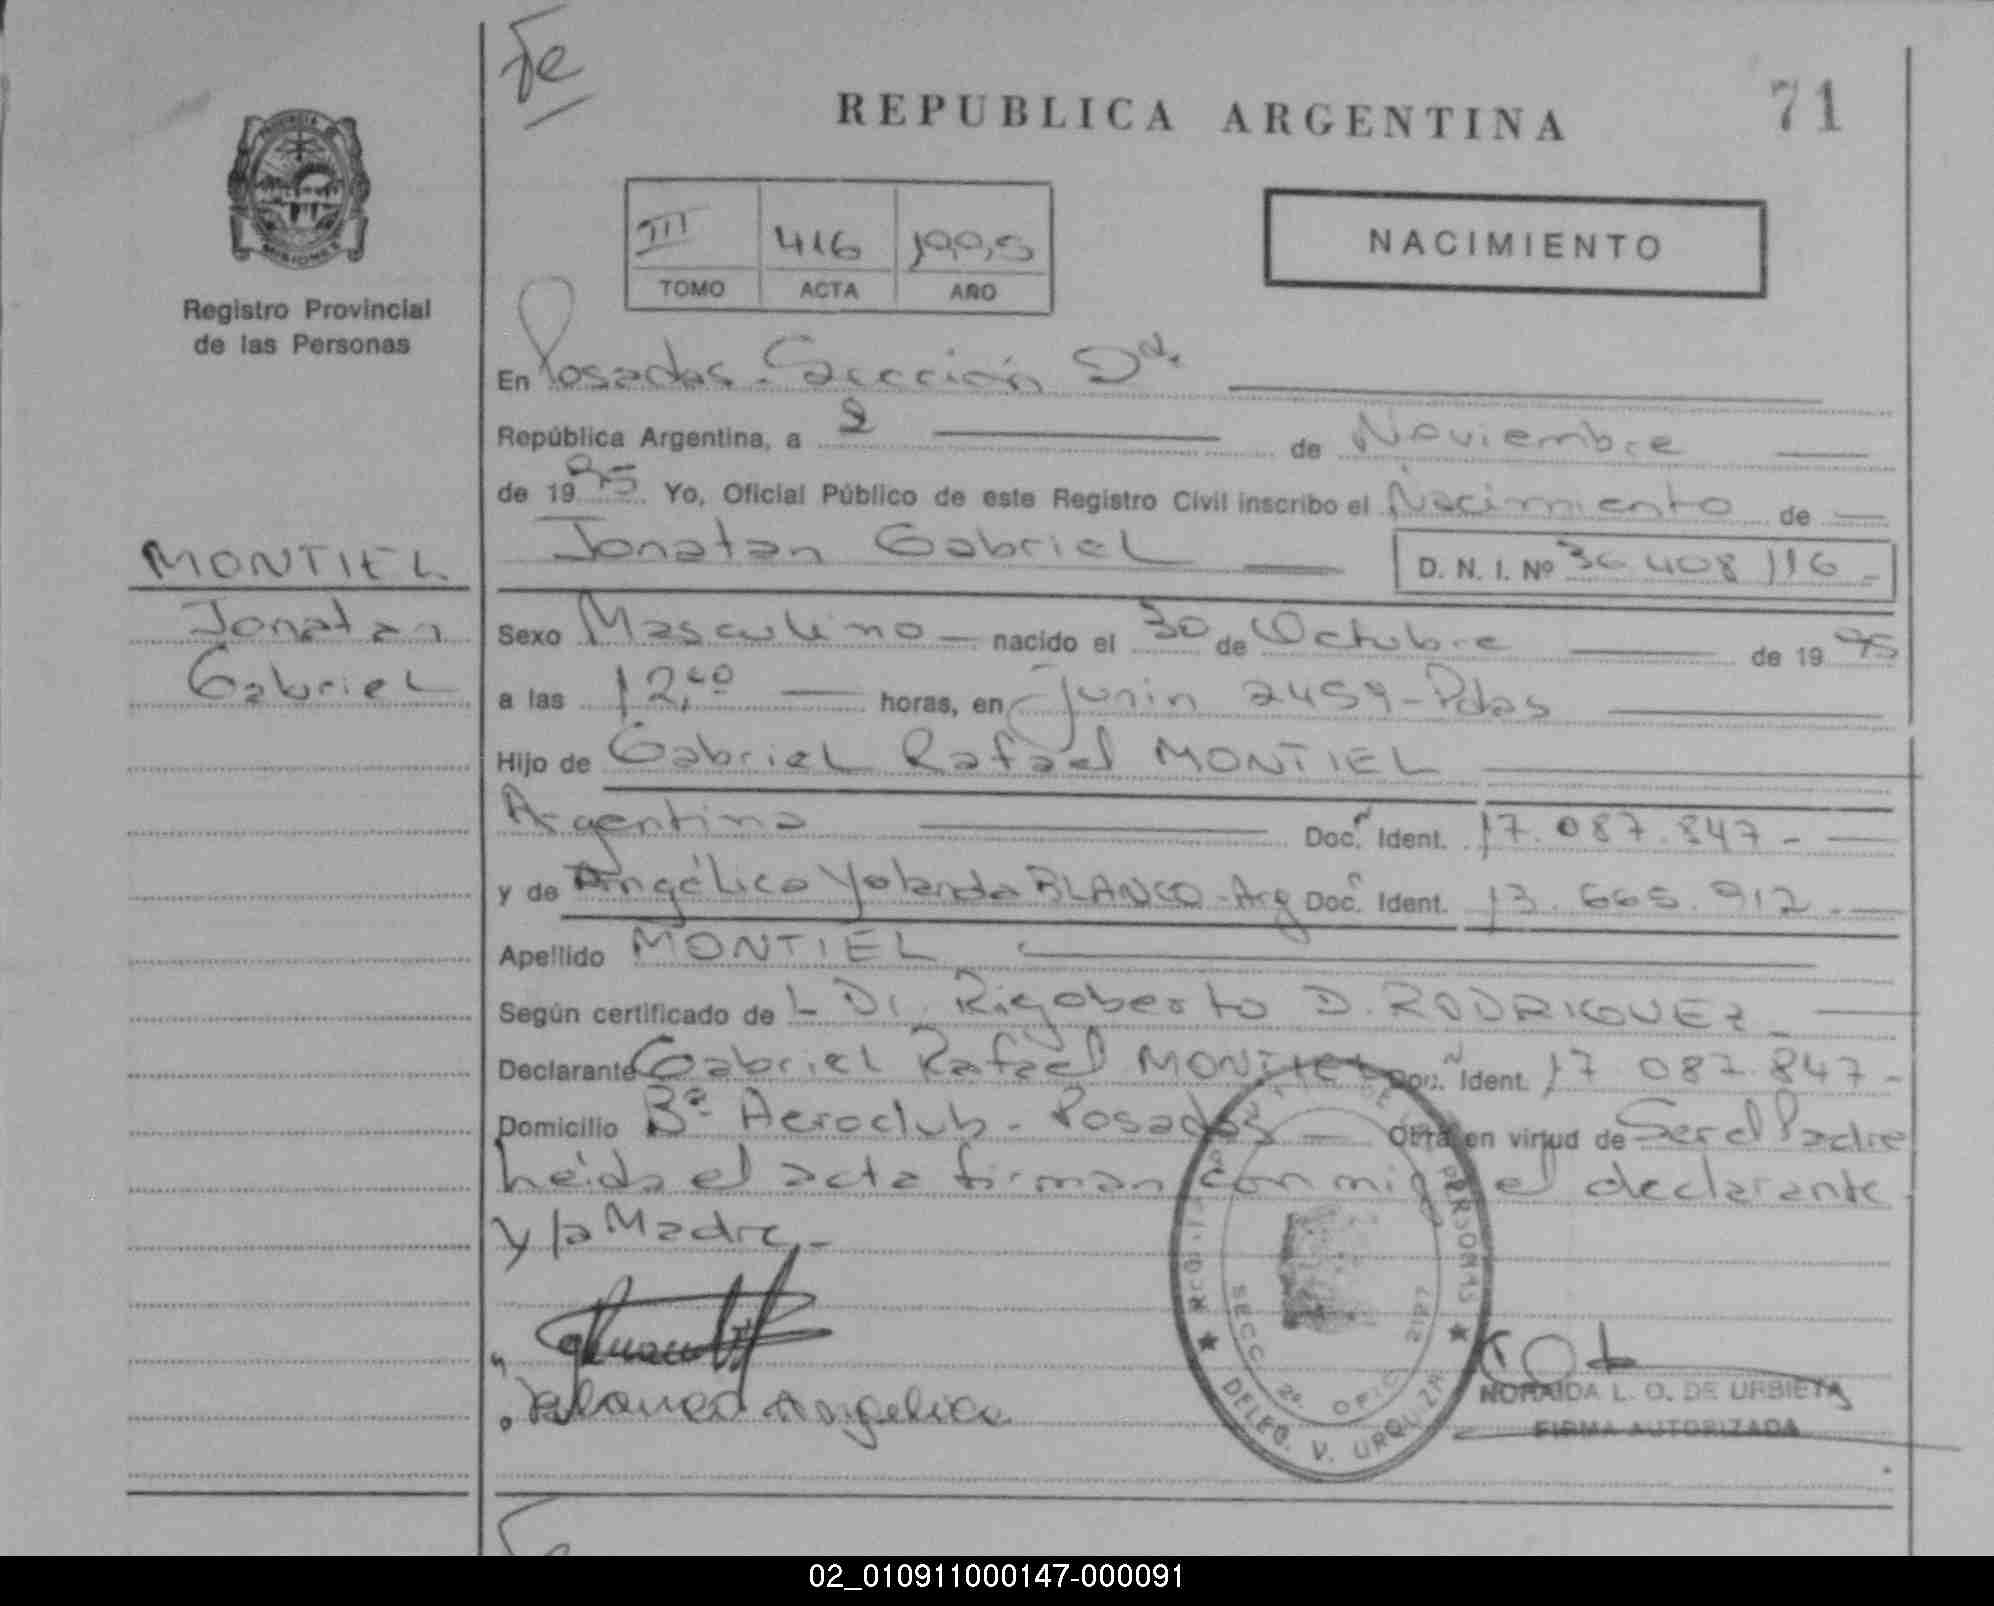 Fe
REPUBLICA ARGENTINA
71
III 416 1995
TOMO ACTA AÑO
NACIMIENTO
Registro Provincial
de las Personas
En Posadas - Sección 2da.
República Argentina, a 2 de Noviembre
de 1995 Yo, Oficial Público de este Registro Civil inscribo el Nacimiento de
Jonatan Gabriel D. N. I. Nº 36 408 116 -
MONTIEL
Jonatan
Gabriel
Sexo Masculino nacido el 30 de Octubre de 1995
a las 12,40 horas, en Junin 2459 - Pdas
Hijo de Gabriel Rafael MONTIEL
Argentina Doc. Ident. 17.087.847 -
y de Angélica Yolanda BLANCO - Arg Doc. Ident. 13.665.912 -
Apellido MONTIEL
Según certificado de L Dr. Rigoberto D. RODRIGUEZ -
Declarante Gabriel Rafael MONTIEL Doc. Ident. 17 087.847 -
Domicilio Bº Aeroclub - Posadas Obra en virtud de Ser el Padre
Leída el acta firman con migo el declarante
y la Madre. -
Blanco Angelica
PERSONAS
SECC 2ª. OFIC
DELEG. V. URQUIZA
NORAIDA L. O. DE URBIETA
FIRMA AUTORIZADA
02_010911000147-000091